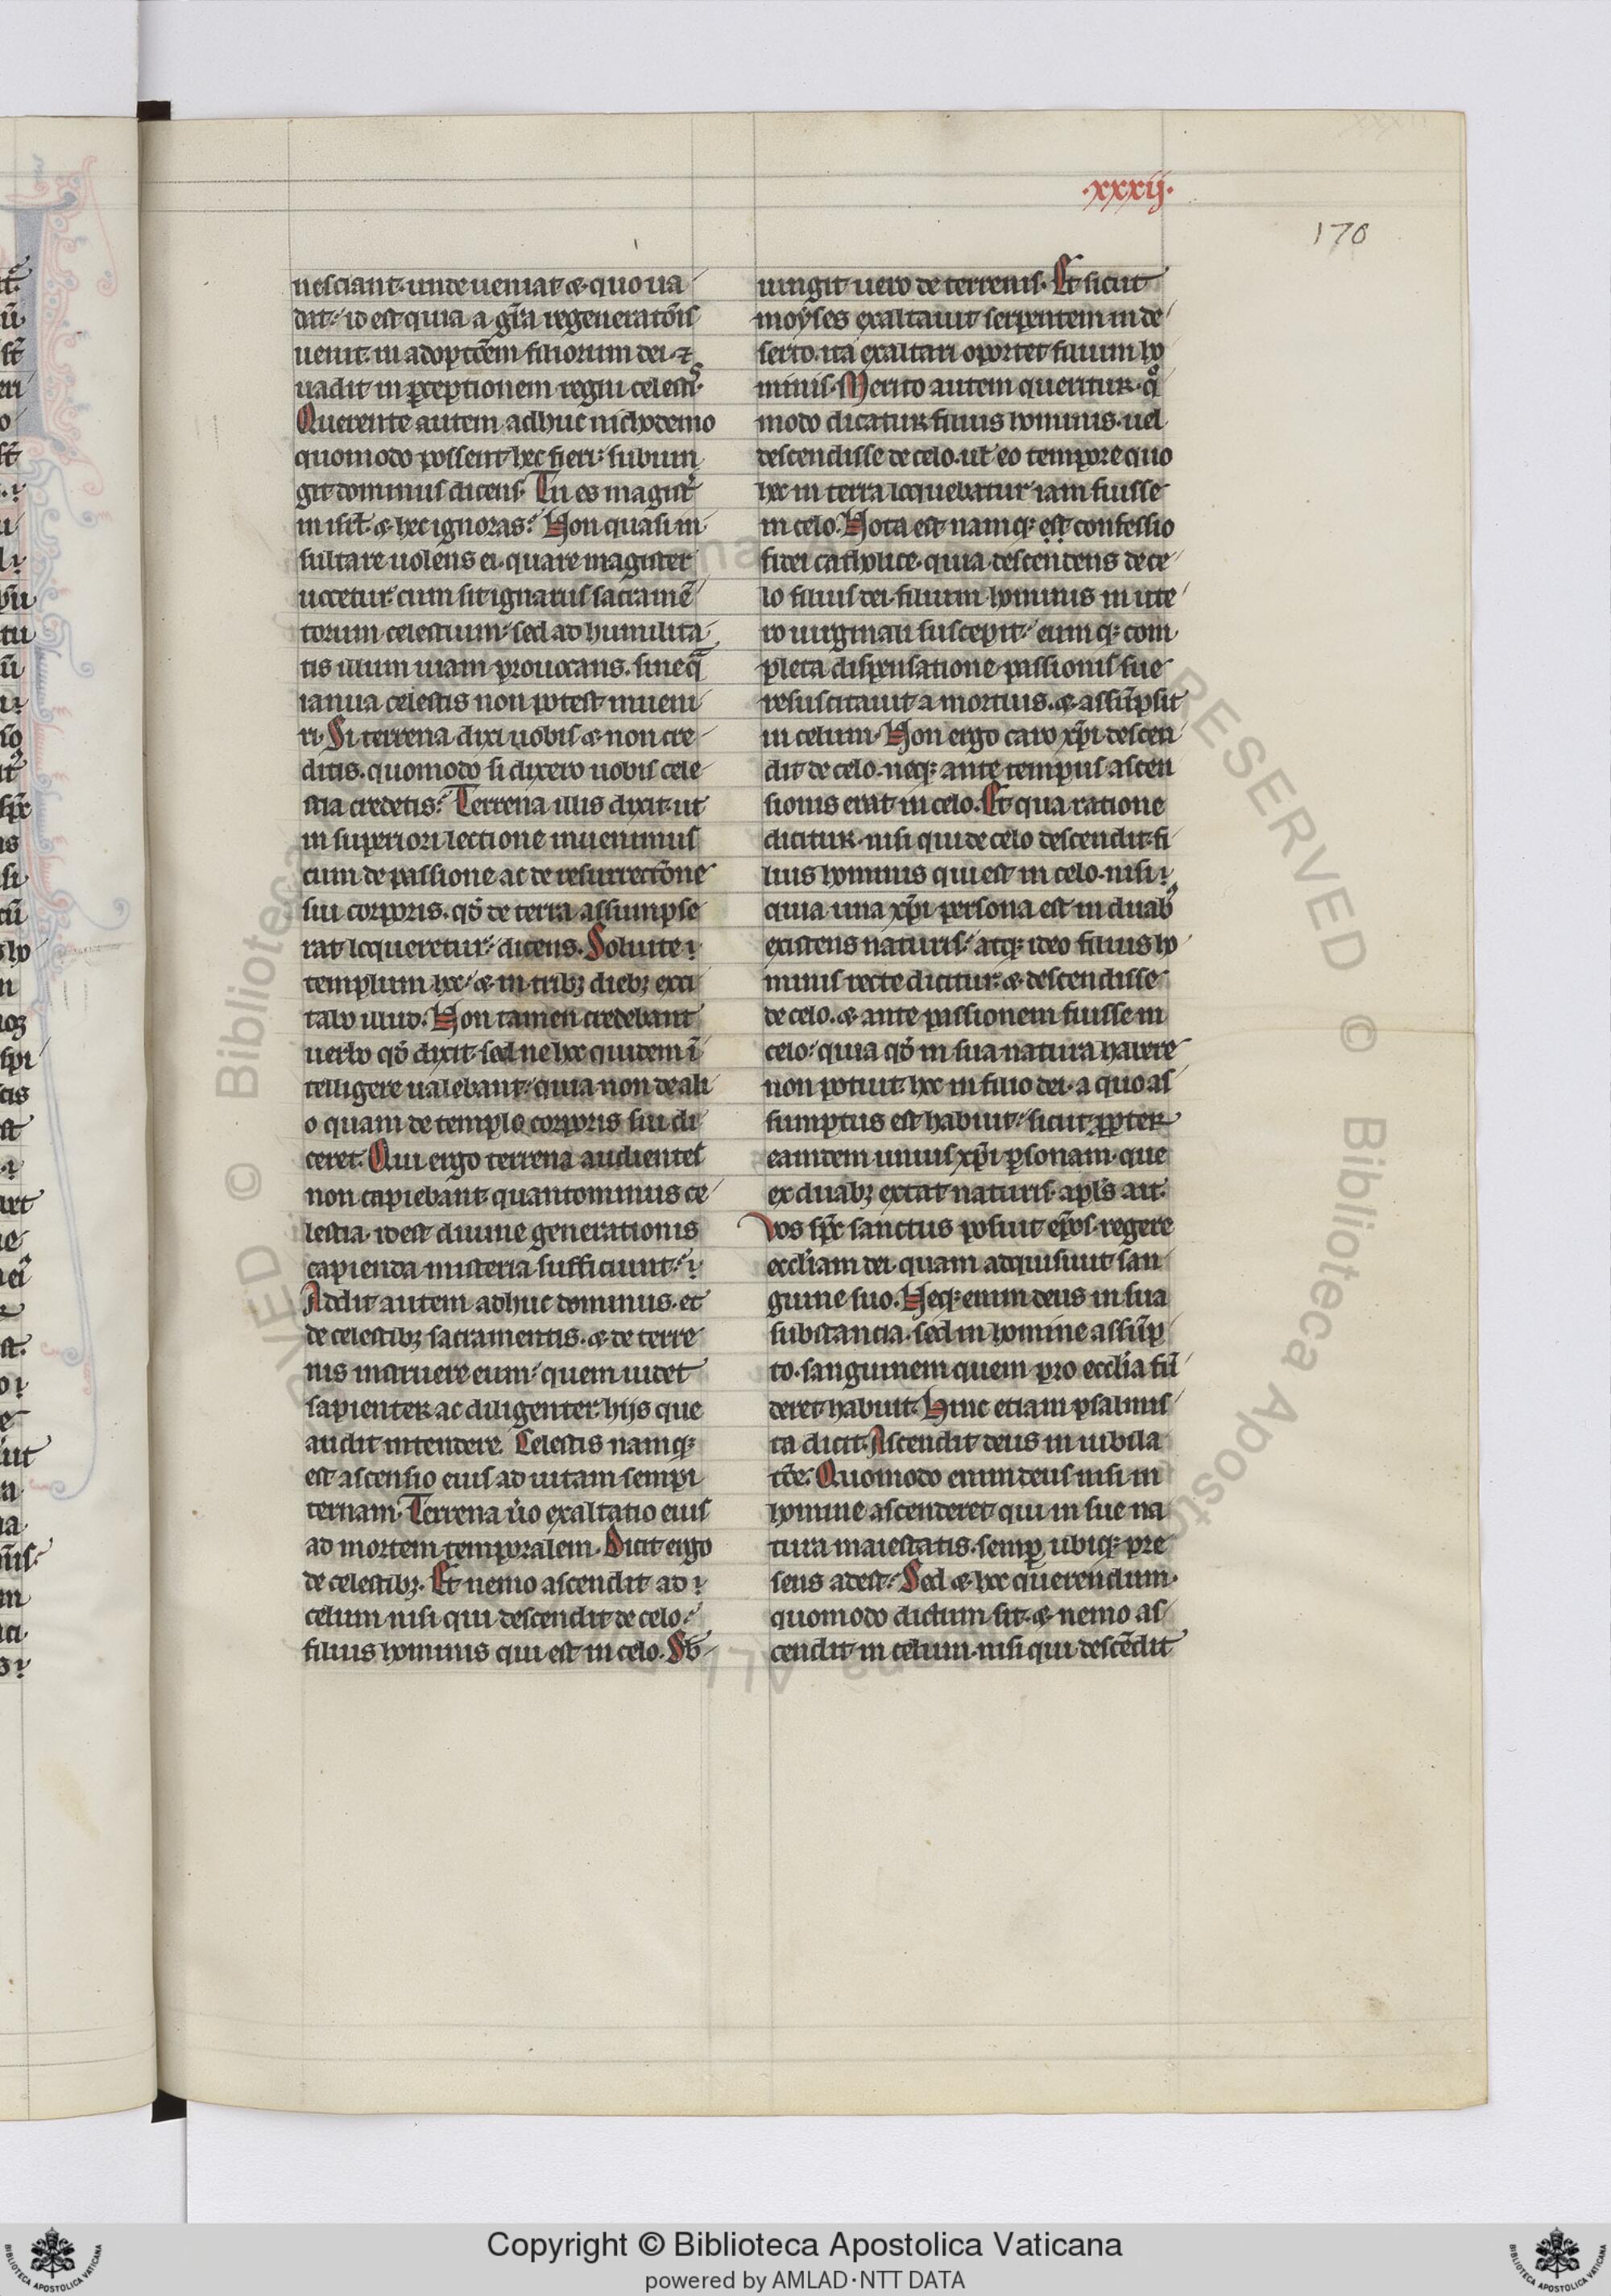 .xxxij.
170
nesciant. unde ueniat & quo ua
dat. id est quia a gr̄a regeneratōis
uenit. in adoptōem filiorum dei. ⁊
uadit in ꝑceptionem regni celestꝰ.
Querente autem adhuc nichodemo
quomodo possent hec fieri. subiun
git dominus dicens. Tu es magist̉
in isrl̄. & hec ignoras. Non quasi in
sultare uolens ei. quare magister
uocetur. cum sit ignarus sacramē
torum celestium. sed ad humilita
tis illum uiam prouocans. sine q̄
ianua celestis non potest inueni
ri. Si terrena dixi uobis & non cre
ditis. quomodo si dixero uobis cele
stia credetis. Terrena illis dixit. ut
in superiori lectione inuenimus
cum de passione ac de resurrectōne
sui corporis. qd̄ de terra assumpse
rat loqueretur. dicens. Soluite ⁊
templum hoc. & in tribꝫ diebꝫ exci
tabo illud. Non tamen credebant
uerbo qd̄ dixit. sed ne hoc quidem ī
telligere ualebant. quia non de ali
o quam de templo corporis sui di
ceret. Qui ergo terrena audientes
non capiebant. quantominus ce
lestia. id est diuine generationis
capienda misteria sufficiunt. ⁊
Addit autem adhuc dominus. et
de celestibꝫ sacramentis. & de terre
nis instruere eum. quem uidet
sapienter ac diligenter. hijs que
audit intendere. Celestis namqꝫ
est ascensio eius ad uitam sempi
ternam. Terrena ũo exaltatio eius
ad mortem temporalem. Dicit ergo
de celestibꝫ. Et nemo ascendit ad ⁊
celum nisi qui descendit de celo.
filius hominis qui est in celo. Sb̄
iungit uero de terrenis. Et sicut
moyses exaltauit serpentem in de
serto. ita exaltari oportet filium ho
minis. Merito autem queritur. qͦ
modo dicatur filius hominis. uel
descendisse de celo. ul̄ eo tempore quo
hec in terra loquebatur iam fuisse
in celo. Nota est namqꝫ est confessio
fidei catholice. quia descendens de ce
lo filius dei. filium hominis in ute
ro uirginali suscepit. eumqꝫ com
pleta dispensatione passionis sue
resuscitauit a mortuis. & assūpsit
in celum. Non ergo caro xp̄i descen
dit de celo. neqꝫ ante tempus ascen
sionis erat in celo. Et qua ratione
dicitur. nisi qui de celo descendit. fi
lius hominis qui est in celo. nisi ⁊
quia una xp̄i persona est in duabꝰ
existens naturis. atqꝫ ideo filius ho
minis recte dicitur. & descendisse
de celo. & ante passionem fuisse in
celo. quia qd̄ in sua natura habere
non potuit. hoc in filio dei. a quo as
sumptus est habuit. sicut ꝓpter
eamdem unius xp̄i ꝑsonam. que
ex duabꝫ extat naturis. apl̄s ait.
Vos sp̄c sanctus posuit ep̄os. regere
eccl̄iam dei. quam adquisiuit san
guine suo. Neqꝫ enim deus in sua
substancia. sed in homine assūp
to. sanguinem quem pro eccl̄ia fū
deret habuit. Hinc etiam psalmis
ta dicit. Ascendit deus in iubila
tōe. Quomodo enim deus nisi in
homine ascenderet qui in sue na
tura maiestatis. semꝑ ubiqꝫ pre
sens adest. Sed & hoc querendum.
quomodo dictum sit. & nemo as
cendit in celum. nisi qui descēdit
Copyright © Biblioteca Apostolica Vaticana
powered by AMLAD·NTT DATA